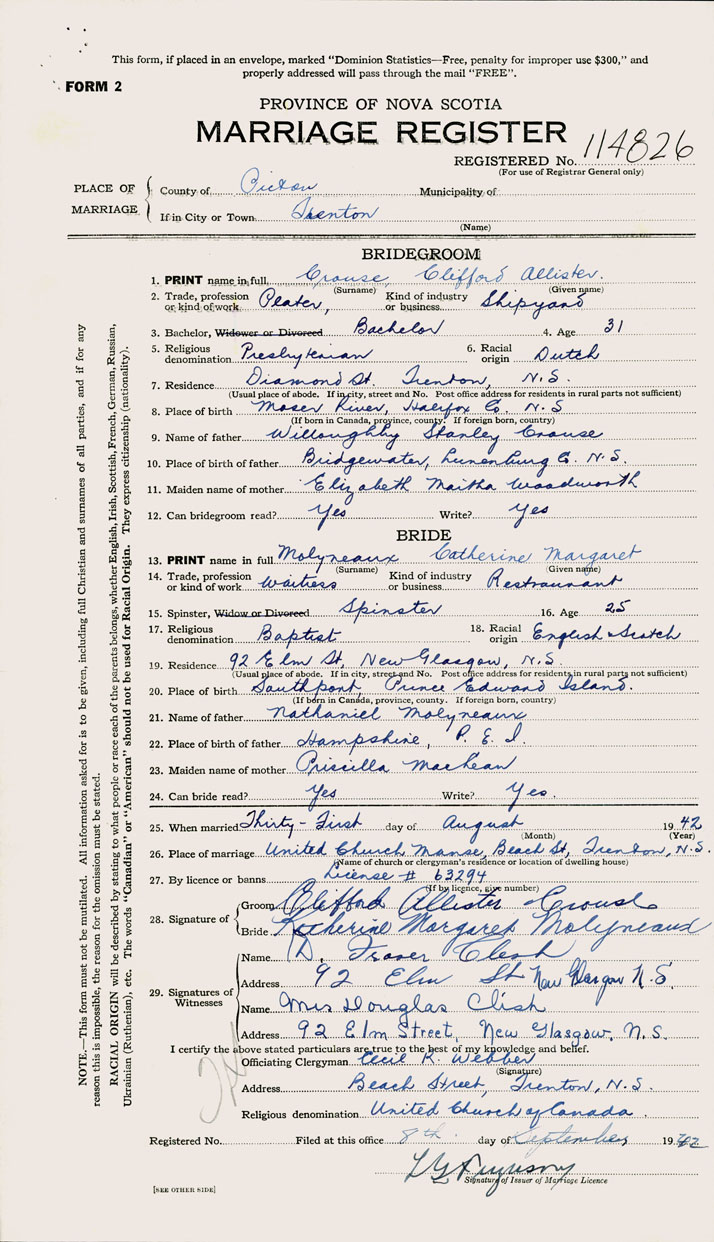 This form, if placed in an envelope, marked "Dominion Statistics—Free, penalty for improper use $300," and
properly addressed will pass through the mail "FREE".
FORM 2
PROVINCE OF NOVA SCOTIA
MARRIAGE REGISTER
REGISTERED No. 114826
(For use of Registrar General only)
PLACE OF MARRIAGE
County of Pictou Municipality of
If in City or Town Trenton
(Name)
BRIDEGROOM
1. PRINT name in full Crouse, Clifford Allister.
(Surname) (Given name)
2. Trade, profession or kind of work Plater, Kind of industry or business Shipyard
3. Bachelor, Widower or Divorced Bachelor 4. Age 31
5. Religious denomination Presbyterian 6. Racial origin Dutch
7. Residence Diamond St. Trenton, N.S.
(Usual place of abode. If in city, street and No. Post office address for residents in rural parts not sufficient)
8. Place of birth Moser River, Halifax Co. N.S
(If born in Canada, province, county. If foreign born, country)
9. Name of father Willoughby Stanley Crouse
10. Place of birth of father Bridgewater, Lunenburg Co. N.S.
11. Maiden name of mother Elizabeth Maitha Woodworth
12. Can bridegroom read? Yes Write? Yes
BRIDE
13. PRINT name in full Molyneaux Catherine Margaret
(Surname) (Given name)
14. Trade, profession or kind of work Waitress Kind of industry or business Restraunant
15. Spinster, Widow or Divorced Spinster 16. Age 25
17. Religious denomination Baptist 18. Racial origin English & Scotch
19. Residence 92 Elm St, New Glasgow, N.S.
(Usual place of abode. If in city, street and No. Post office address for residents in rural parts not sufficient)
20. Place of birth Southport, Prince Edward Island.
(If born in Canada, province, county. If foreign born, country)
21. Name of father Nathaniel Molyneaux
22. Place of birth of father Hampshire, P. E. I.
23. Maiden name of mother Priscilla MacLean
24. Can bride read? Yes Write? Yes.
25. When married Thirty-First day of August 1942
(Month) (Year)
26. Place of marriage United Church Manse, Beach St, Trenton, N.S.
(Name of church or clergyman's residence or location of dwelling house)
27. By licence or banns License # 63294
(If by licence, give number)
28. Signature of
Groom Clifford Allister Crouse
Bride Katherine Margaret Molyneaux
29. Signatures of Witnesses
Name D. Fraser Clish
Address 92 Elm St New Glasgow N.S.
Name Mrs Douglas Clish
Address 92 Elm Street, New Glasgow, N.S.
I certify the above stated particulars are true to the best of my knowledge and belief.
Officiating Clergyman Cecil R. Webber
(Signature)
Address Beach Street, Trenton, N.S.
Religious denomination United Church of Canada.
Registered No. Filed at this office 8th. day of September 1942
Signature of Issuer of Marriage Licence
[SEE OTHER SIDE]
NOTE.—This form must not be mutilated. All information asked for is to be given, including full Christian and surnames of all parties, and if for any
reason this is impossible, the reason for the omission must be stated.
RACIAL ORIGIN will be described by stating to what people or race each of the parents belongs, whether English, Irish, Scottish, French, German, Russian,
Ukrainian (Ruthenian), etc. The words "Canadian" or "American" should not be used for Racial Origin. They express citizenship (nationality).